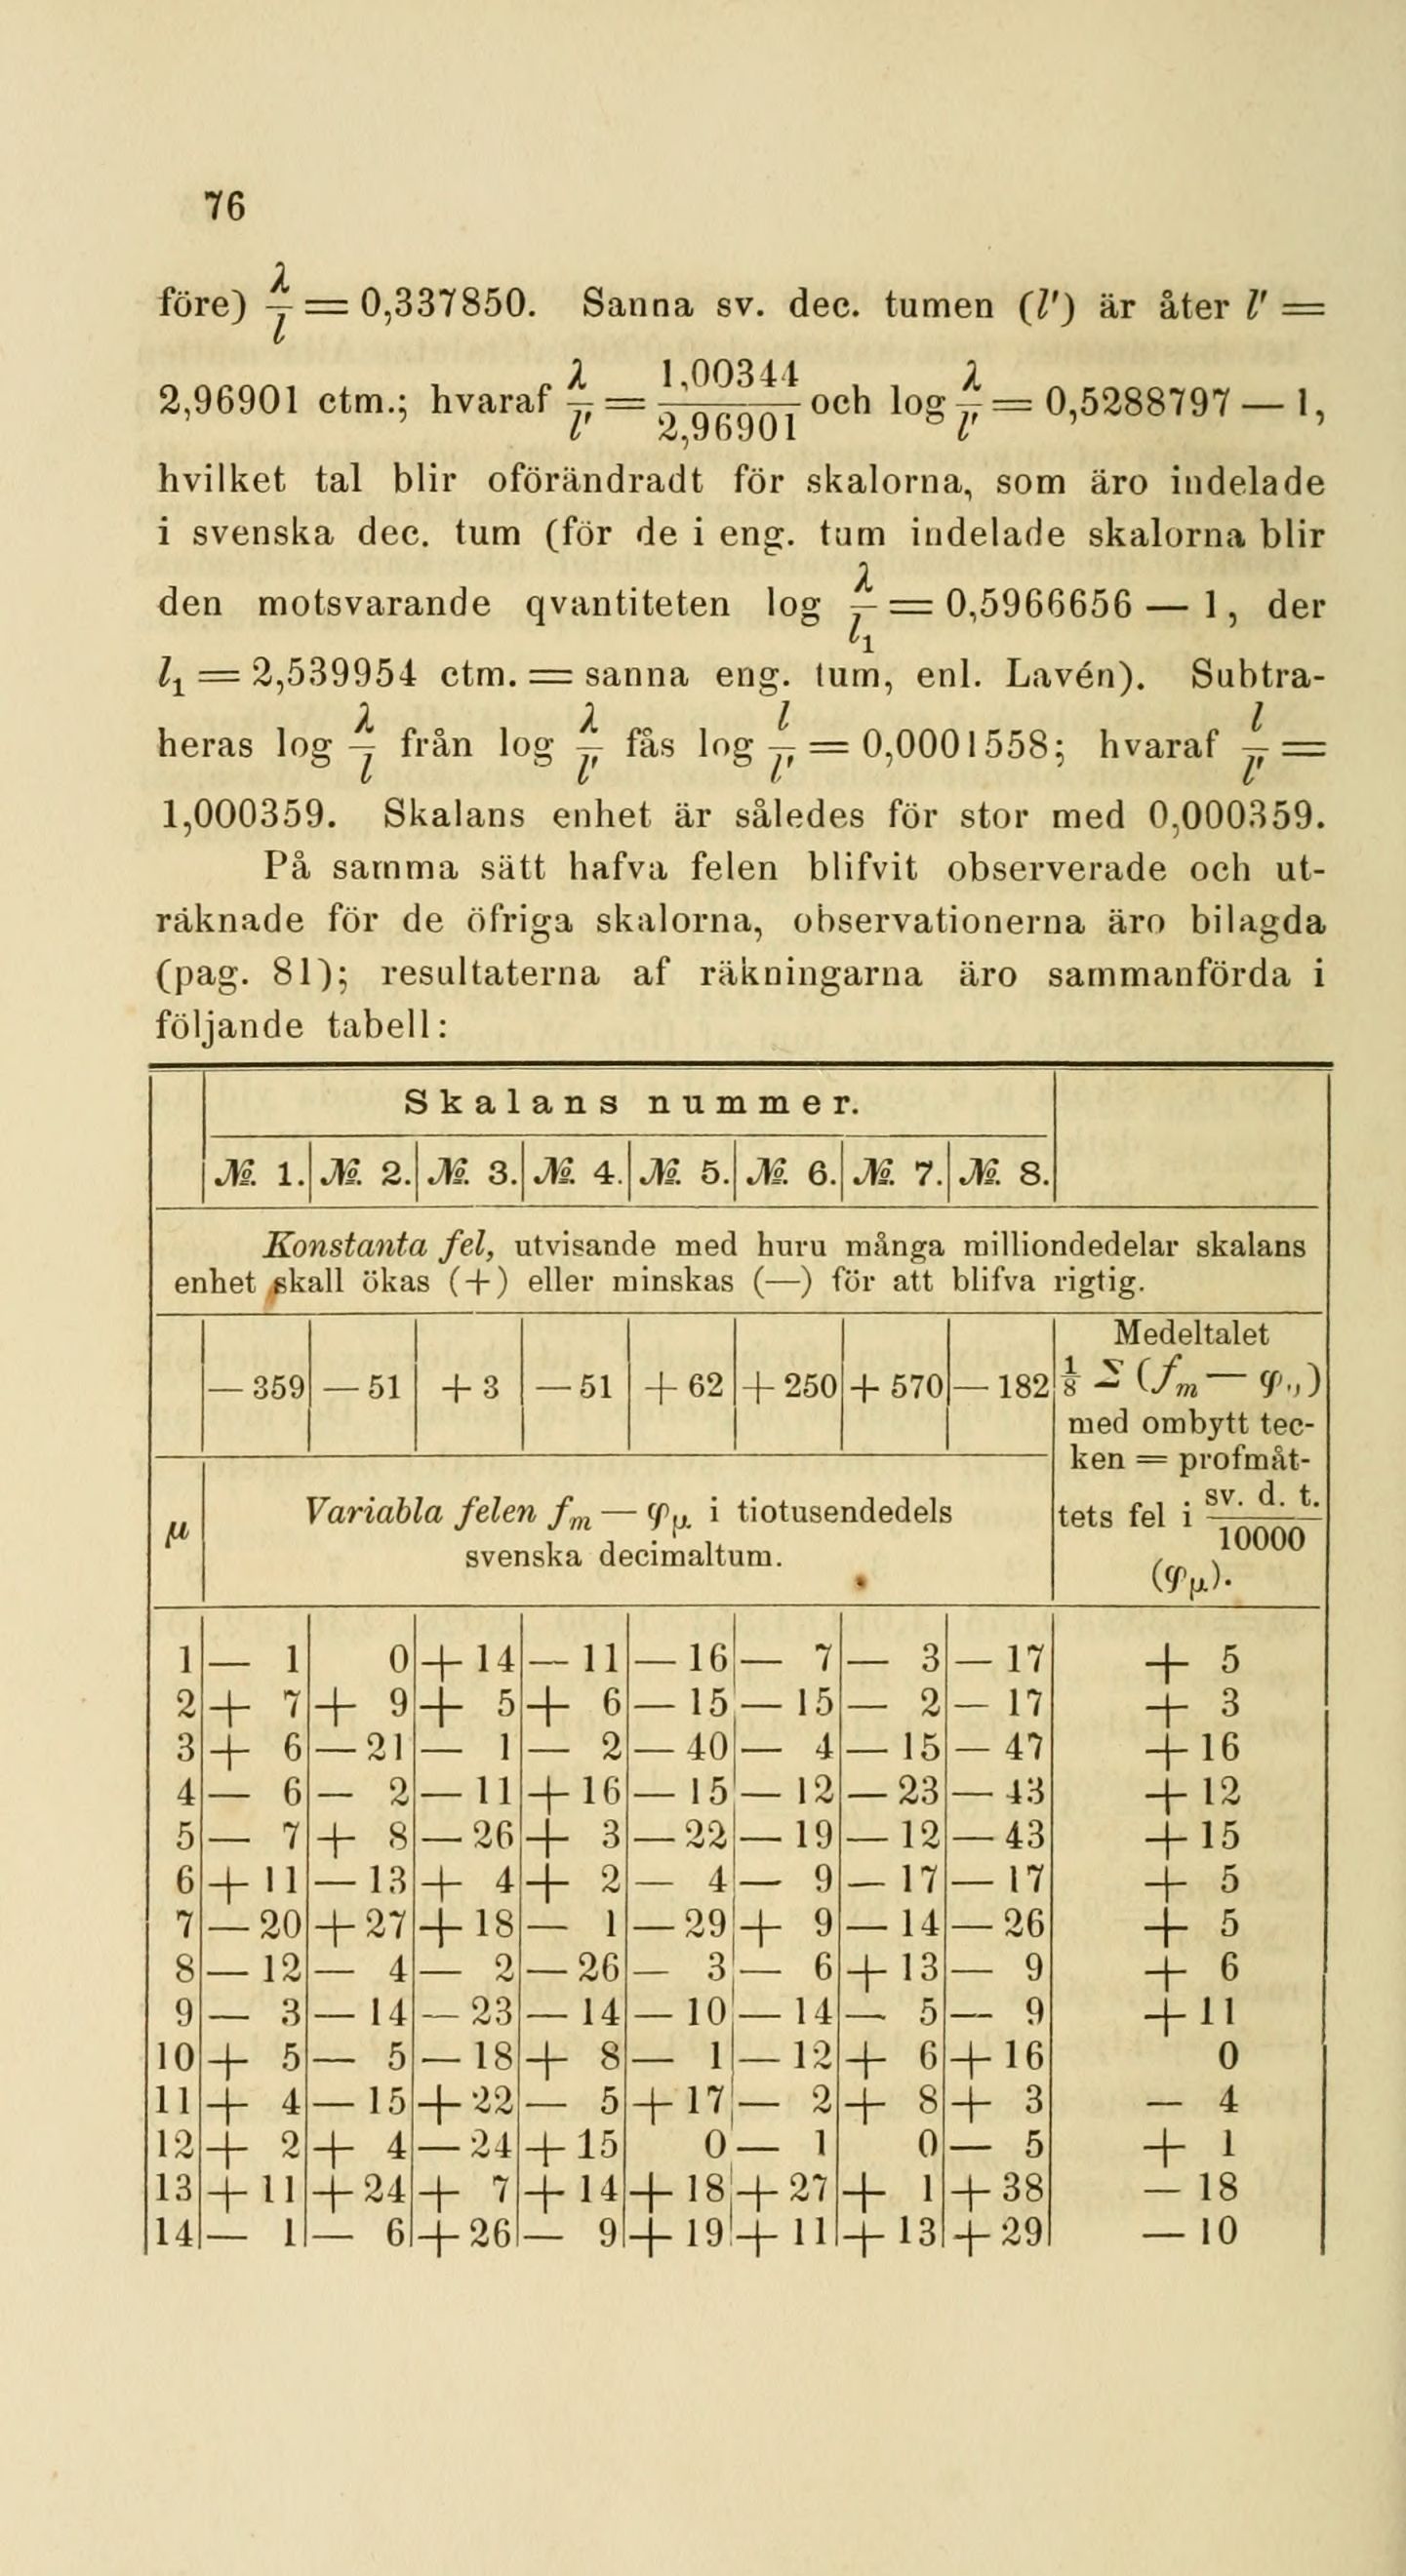 76
före) λ/l = 0,337850. Sanna sv. dec. tumen (l') är åter l' =
2,96901 ctm.; hvaraf λ/l' = 1,00344/2,96901 och log λ/l' = 0,5288797 — 1,
hvilket tal blir oförändradt för skalorna, som äro indelade
i svenska dec. tum (för de i eng. tum indelade skalorna blir
den motsvarande qvantiteten log λ/l₁ = 0,5966656 — 1, der
l₁ = 2,539954 ctm. = sanna eng. tum, enl. Lavén). Subtra-
heras log λ/l från log λ/l' fås log l/l' = 0,0001558; hvaraf l/l' =
1,000359. Skalans enhet är således för stor med 0,000359.
På samma sätt hafva felen blifvit observerade och ut-
räknade för de öfriga skalorna, observationerna äro bilagda
(pag. 81); resultaterna af räkningarna äro sammanförda i
följande tabell:
Skalans nummer.
№ 1. № 2. № 3. № 4. № 5. № 6. № 7. № 8.
Konstanta fel, utvisande med huru många milliondedelar skalans
enhet skall ökas (+) eller minskas (—) för att blifva rigtig.
— 359 — 51 + 3 — 51 + 62 + 250 + 570 — 182
Medeltalet
⅛ Σ (fₘ — φᵤ)
med ombytt tec-
ken = profmåt-
tets fel i sv. d. t./10000
(φμ).
μ
Variabla felen fₘ — φμ i tiotusendedels
svenska decimaltum.
1 — 1 0 + 14 — 11 — 16 — 7 — 3 — 17 + 5
2 + 7 + 9 + 5 + 6 — 15 — 15 — 2 — 17 + 3
3 + 6 — 21 — 1 — 2 — 40 — 4 — 15 — 47 + 16
4 — 6 — 2 — 11 + 16 — 15 — 12 — 23 — 43 + 12
5 — 7 + 8 — 26 + 3 — 22 — 19 — 12 — 43 + 15
6 + 11 — 13 + 4 + 2 — 4 — 9 — 17 — 17 + 5
7 — 20 + 27 + 18 — 1 — 29 + 9 — 14 — 26 + 5
8 — 12 — 4 — 2 — 26 — 3 — 6 + 13 — 9 + 6
9 — 3 — 14 — 23 — 14 — 10 — 14 — 5 — 9 + 11
10 + 5 — 5 — 18 + 8 — 1 — 12 + 6 + 16 0
11 + 4 — 15 + 22 — 5 + 17 — 2 + 8 + 3 — 4
12 + 2 + 4 — 24 + 15 0 — 1 0 — 5 + 1
13 + 11 + 24 + 7 + 14 + 18 + 27 + 1 + 38 — 18
14 — 1 — 6 + 26 — 9 + 19 + 11 + 13 + 29 — 10